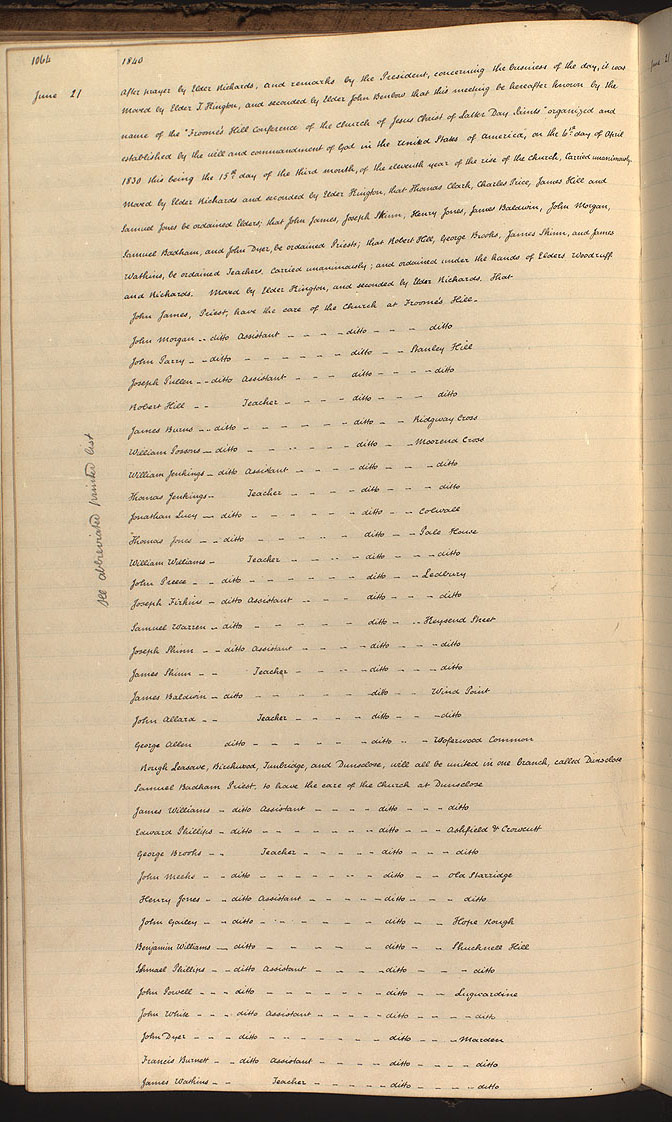 1064
1840
June 21
After prayer by Elder Richards, and remarks by the President, concerning the business of the day, it was
moved by Elder T. Kington, and seconded by Elder John Benbow that this meeting be hereafter known by the
name of the "Froome's Hill Conference of the Church of Jesus Christ of Latter Day Saints" organized and
established by the will and commandment of God in the United States of America, on the 6th day of April
1830 this being the 15th day of the third month, of the eleventh year of the rise of the church, Carried unanimously.
Moved by Elder Richards and seconded by Elder Kington, that Thomas Clark, Charles Price, James Hill and
Samuel Jones be ordained Elders; that John James, Joseph Skinn, Henry Jones, James Baldwin, John Morgan,
Samuel Badham, and John Dyer, be ordained Priests; that Robert Hill, George Brooks, James Skinn, and James
Watkins, be ordained Teachers, Carried unanimously; and ordained under the hands of Elders Woodruff
and Richards. Moved by Elder Kington, and seconded by Elder Richards, That
John James, Priest, have the care of the Church at Froome's Hill.
John Morgan - - ditto Assistant - - - - ditto - - - ditto
John Parry - - ditto - - - - - - ditto - - Stanley Hill
Joseph Pullen - - ditto Assistant - - - ditto - - - ditto
Robert Hill - - Teacher - - - ditto - - - ditto
James Burns - - ditto - - - - - - ditto - - Ridgway Cross
William Possons - ditto - - - - - - ditto - - Moorend Cross
William Jenkings - ditto Assistant - - - - ditto - - - ditto
Thomas Jenkings - Teacher - - - - ditto - - - ditto
Jonathan Lucy - ditto - - - - - - ditto - - Colwall
Thomas Jones - - ditto - - - - - - ditto - - Pale House
William Williams - Teacher - - - - ditto - - - ditto
John Preece - - ditto - - - - - - ditto - - Ledbury
Joseph Firkins - ditto Assistant - - - - ditto - - - ditto
Samuel Warren - ditto - - - - - - ditto - - Keysend Street
Joseph Skinn - - ditto Assistant - - - - ditto - - - ditto
James Skinn - - Teacher - - - - ditto - - - ditto
James Baldwin - ditto - - - - - - ditto - - Wind Point
John Allard - - Teacher - - - - ditto - - - ditto
George Allen ditto - - - - - - ditto - - Woferwood Common
Rough Leasave, Birchwood, Tunbridge, and Dunsclose, will all be united in one branch, called Dunsclose
Samuel Badham Priest, to have the care of the church at Dunsclose
James Williams - ditto Assistant - - - - ditto - - - ditto
Edward Phillips - ditto - - - - - - ditto - - Ashfield & Crowcutt
George Brooks - - Teacher - - - - - ditto - - - ditto
John Meeks - - ditto - - - - - - ditto - - Old Starridge
Henry Jones - - ditto Assistant - - - - ditto - - - ditto
John Gailey - - ditto - - - - - - ditto - - Hope Rough
Benjamin Williams - ditto - - - - - - ditto - - Shucknell Hill
Ishmael Phillips - - ditto Assistant - - - - ditto - - - ditto
John Powell - - - ditto - - - - - - ditto - - Lugwardine
John White - - - ditto Assistant - - - - ditto - - - ditto
John Dyer - - - ditto - - - - - - ditto - - Marden
Francis Burnett - - ditto Assistant - - - - ditto - - - ditto
James Watkins - - Teacher - - - - - ditto - - - ditto
see abbreviated printed list